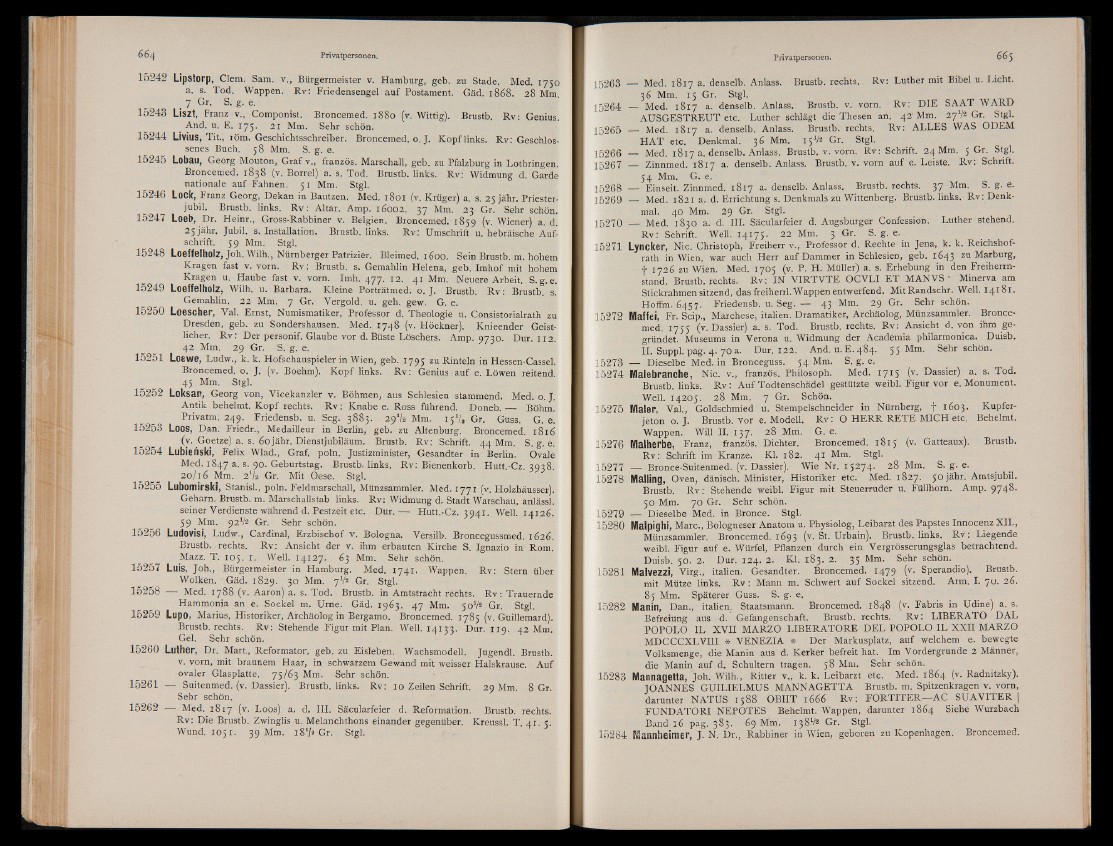 664 Privatpersonen.
15242 Lipstorp, Clem. Sam. v., Bürgermeister v. Hamburg, geb. zu Stade. Med. 1750
a. s. Tod. Wappen. Rv: Friedensengel auf Postament. Gäd. 1868. 28 Mm.
7 Gr. S. g. e.
15243 Liszt, Franz v., Componist. Broncemed. 1880 (v. Wittig). Brustb. Rv: Genius.
And. u. E. 175. 21 Mm. Sehr schön.
15244 Livius, Tit., röm. Geschichtsschreiber. Broncemed. o. J. Kopf links. Rv: Geschlos-
senes Buch. 58 Mm. S. g. e.
15245 Lobau, Georg Mouton, Graf v., französ. Marschall, geb. zu Pfalzburg in Lothringen.
Broncemed. 1838 (v. Borrel) a. s. Tod. Brustb. links. Rv: Widmung d. Garde
nationale auf Fahnen. 51 Mm. Stgl.
15246 Lock, Franz Georg, Dekan in Bautzen. Med. 1801 (v. Krüger) a. s. 25 jähr. Priester-
jubil. Brustb. links. Rv: Altar. Amp. 16002. 37 Mm. 23 Gr. Sehr schön.
15247 Loeb, Dr. Heinr., Gross-Rabbiner v. Belgien. Broncemed. 1859 (v. Wiener) a. d.
25 jähr. Jubil. s. Installation. Brustb. links. Rv: Umschrift u. hebräische Auf-
schrift. 59 Mm. Stgl.
15248 Loeffelholz, Joh. Wilh., Nürnberger Patrizier. Bleimed. 1600. Sein Brustb. m. hohem
Kragen fast v. vorn. Rv: Brustb. s. Gemahlin Helena, geb. Imhof mit hohem
Kragen u. Haube fast v. vorn. Imh. 477. 12. 41 Mm. Neuere Arbeit. S. g. e.
15249 Loeffelholz, Wilh. u. Barbara. Kleine Porträtmed. o. J. Brustb. Rv: Brustb. s.
Gemahlin. 22 Mm. 7 Gr. Vergold. u. geh. gew. G. e.
15250 Loescher, Val. Ernst, Numismatiker, Professor d. Theologie u. Consistorialrath zu
Dresden, geb. zu Sondershausen. Med. 1748 (v. Höckner). Knieender Geist-
licher. Rv: Der personif. Glaube vor d. Büste Löschers. Amp. 9730. Dur. 112.
42 Mm. 29 Gr. S. g. e.
15251 Loewe, Ludw., k. k. Hofschauspieler in Wien, geb. 1795 zu Rinteln in Hessen-Cassel.
Broncemed. o. J. (v. Boehm). Kopf links. Rv: Genius auf e. Löwen reitend.
45 Mm. Stgl.
15252 Loksan, Georg von, Vicekanzler v. Böhmen, aus Schlesien stammend. Med. o. J.
Antik behelmt. Kopf rechts. Rv: Knabe e. Ross führend. Doneb. — Böhm.
Privatm. 249. Friedensb. u. Seg. 3883. 29½ Mm. 15½ Gr. Guss. G. e.
15253 Loos, Dan. Friedr., Medailleur in Berlin, geb. zu Altenburg. Broncemed. 1816
(v. Goetze) a. s. 60 jähr. Dienstjubiläum. Brustb. Rv: Schrift. 44 Mm. S. g. e.
15254 Lubieński, Felix Wlad., Graf, poln. Justizminister, Gesandter in Berlin. Ovale
Med. 1847 a. s. 90. Geburtstag. Brustb. links. Rv: Bienenkorb. Hutt.-Cz. 3938.
20/16 Mm. 2½ Gr. Mit Oese. Stgl.
15255 Lubomirski, Stanisl., poln. Feldmarschall, Münzsammler. Med. 1771 (v. Holzhäusser).
Geharn. Brustb. m. Marschallstab links. Rv: Widmung d. Stadt Warschau, anlässl.
seiner Verdienste während d. Pestzeit etc. Dur. — Hutt.-Cz. 3941. Well. 14126.
59 Mm. 92½ Gr. Sehr schön.
15256 Ludovisi, Ludw., Cardinal, Erzbischof v. Bologna. Versilb. Broncegussmed. 1626.
Brustb. rechts. Rv: Ansicht der v. ihm erbauten Kirche S. Ignazio in Rom.
Mazz. T. 105. 1. Well. 14127. 63 Mm. Sehr schön.
15257 Luis, Joh., Bürgermeister in Hamburg. Med. 1741. Wappen. Rv: Stern über
Wolken. Gäd. 1829. 30 Mm. 7½ Gr. Stgl.
15258 — Med. 1788 (v. Aaron) a. s. Tod. Brustb. in Amtstracht rechts. Rv: Trauernde
Hammonia an e. Sockel m. Urne. Gäd. 1963. 47 Mm. 50½ Gr. Stgl.
15259 Lupo, Marius, Historiker, Archäolog in Bergamo. Broncemed. 1785 (v. Guillemard).
Brustb. rechts. Rv: Stehende Figur mit Plan. Well. 14133. Dur. 119. 42 Mm.
Gel. Sehr schön.
15260 Luther, Dr. Mart., Reformator, geb. zu Eisleben. Wachsmodell. Jugendl. Brustb.
v. vorn, mit braunem Haar, in schwarzem Gewand mit weisser Halskrause. Auf
ovaler Glasplatte. 75/63 Mm. Sehr schön.
15261 — Suitenmed. (v. Dassier). Brustb. links. Rv: 10 Zeilen Schrift. 29 Mm. 8 Gr.
Sehr schön.
15262 — Med. 1817 (v. Loos) a. d. III. Säcularfeier d. Reformation. Brustb. rechts.
Rv: Die Brustb. Zwinglis u. Melanchthons einander gegenüber. Kreussl. T. 41. 5.
Wund. 1051. 39 Mm. 18½ Gr. Stgl.
Privatpersonen. 665
15263 — Med. 1817 a. denselb. Anlass. Brustb. rechts. Rv: Luther mit Bibel u. Licht.
36 Mm. 15 Gr. Stgl.
15264 — Med. 1817 a. denselb. Anlass. Brustb. v. vorn. Rv: DIE SAAT WARD
AUSGESTREUT etc. Luther schlägt die Thesen an. 42 Mm. 27½ Gr. Stgl.
15265 — Med. 1817 a. denselb. Anlass. Brustb. rechts. Rv: ALLES WAS ODEM
HAT etc. Denkmal. 36 Mm. 15½ Gr. Stgl.
15266 — Med. 1817 a. denselb. Anlass. Brustb. v. vorn. Rv: Schrift. 24 Mm. 5 Gr. Stgl.
15267 — Zinnmed. 1817 a. denselb. Anlass. Brustb. v. vorn auf e. Leiste. Rv: Schrift.
54 Mm. G. e.
15268 — Einseit. Zinnmed. 1817 a. denselb. Anlass. Brustb. rechts. 37 Mm. S. g. e.
15269 — Med. 1821 a. d. Errichtung s. Denkmals zu Wittenberg. Brustb. links. Rv: Denk-
mal. 40 Mm. 29 Gr. Stgl.
15270 — Med. 1830 a. d. III. Säcularfeier d. Augsburger Confession. Luther stehend.
Rv: Schrift. Well. 14175. 22 Mm. 3 Gr. S. g. e.
15271 Lyncker, Nic. Christoph, Freiherr v., Professor d. Rechte in Jena, k. k. Reichshof-
rath in Wien, war auch Herr auf Dammer in Schlesien, geb. 1643 zu Marburg,
† 1726 zu Wien. Med. 1705 (v. P. H. Müller) a. s. Erhebung in den Freiherrn-
stand. Brustb. rechts. Rv: IN VIRTVTE OCVLI ET MANVS · Minerva am
Stickrahmen sitzend, das freiherrl. Wappen entwerfend. Mit Randschr. Well. 14181.
Hoffm. 6457. Friedensb. u. Seg. — 43 Mm. 29 Gr. Sehr schön.
15272 Maffei, Fr. Scip., Marchese, italien. Dramatiker, Archäolog, Münzsammler. Bronce-
med. 1755 (v. Dassier) a. s. Tod. Brustb. rechts. Rv: Ansicht d. von ihm ge-
gründet. Museums in Verona u. Widmung der Academia philarmonica. Duisb.
II. Suppl. pag. 4. 70 a. Dur. 122. And. u. E. 484. 55 Mm. Sehr schön.
15273 — Dieselbe Med. in Bronceguss. 54 Mm. S. g. e.
15274 Malebranche, Nic. v., französ. Philosoph. Med. 1715 (v. Dassier) a. s. Tod.
Brustb. links. Rv: Auf Todtenschädel gestützte weibl. Figur vor e. Monument.
Well. 14205. 28 Mm. 7 Gr. Schön.
15275 Maler, Val., Goldschmied u. Stempelschneider in Nürnberg, † 1603. Kupfer-
jeton o. J. Brustb. vor e. Modell. Rv: O HERR RETE MICH etc. Behelmt.
Wappen. Will II. 137. 28 Mm. G. e.
15276 Malherbe, Franz, französ. Dichter. Broncemed. 1815 (v. Gatteaux). Brustb.
Rv: Schrift im Kranze. Kl. 182. 41 Mm. Stgl.
15277 — Bronce-Suitenmed. (v. Dassier). Wie Nr. 15274. 28 Mm. S. g. e.
15278 Malling, Oven, dänisch. Minister, Historiker etc. Med. 1827. 50 jähr. Amtsjubil.
Brustb. Rv: Stehende weibl. Figur mit Steuerruder u. Füllhorn. Amp. 9748.
50 Mm. 70 Gr. Sehr schön.
15279 — Dieselbe Med. in Bronce. Stgl.
15280 Malpighi, Marc., Bologneser Anatom u. Physiolog, Leibarzt des Papstes Innocenz XII.,
Münzsammler. Broncemed. 1693 (v. St. Urbain). Brustb. links. Rv: Liegende
weibl. Figur auf e. Würfel, Pflanzen durch ein Vergrösserungsglas betrachtend.
Duisb. 50. 2. Dur. 124. 2. Kl. 183. 2. 35 Mm. Sehr schön.
15281 Malvezzi, Virg., italien. Gesandter. Broncemed. 1479 (v. Sperandio). Brustb.
mit Mütze links. Rv: Mann m. Schwert auf Sockel sitzend. Arm. I. 70. 26.
85 Mm. Späterer Guss. S. g. e.
15282 Manin, Dan., italien. Staatsmann. Broncemed. 1848 (v. Fabris in Udine) a. s.
Befreiung aus d. Gefangenschaft. Brustb. rechts. Rv: LIBERATO DAL
POPOLO IL XVII MARZO LIBERATORE DEL POPOLO IL XXII MARZO
MDCCCXLVIII * VENEZIA * Der Markusplatz, auf welchem e. bewegte
Volksmenge, die Manin aus d. Kerker befreit hat. Im Vordergrunde 2 Männer,
die Manin auf d. Schultern tragen. 58 Mm. Sehr schön.
15283 Mannagetta, Joh. Wilh., Ritter v., k. k. Leibarzt etc. Med. 1864 (v. Radnitzky).
JOANNES GUILIELMUS MANNAGETTA Brustb. m. Spitzenkragen v. vorn,
darunter NATUS 1588 OBIIT 1666 Rv: FORTITER—AC SUAVITER |
FUNDATORI NEPOTES Behelmt. Wappen, darunter 1864 Siehe Wurzbach
Band 16 pag. 383. 69 Mm. 138½ Gr. Stgl.
15284 Mannheimer, J. N. Dr., Rabbiner in Wien, geboren zu Kopenhagen. Broncemed.